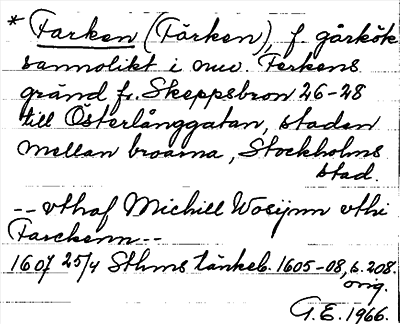 * Farken (Färken), f. gårkök
sannolikt i nuv. Ferkens
gränd fr. Skeppsbron 26-28
till Österlånggatan, staden
mellan broarna, Stockholms
stad.
-- vthaf Michill Wosijnn vthi
Farckenn --
1607 25/4 Sthms tänkeb. 1605-08, s. 208.
orig.
G.E. 1966.